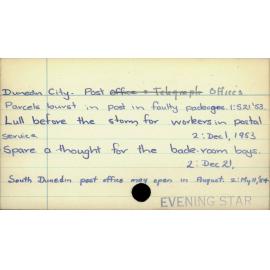 Dunedin City - Post Office & Telegraph Offices
Parcels burst in post in faulty packages. 1:5.21'53.
Lull before the storm for workers in postal
service 2: Dec 1, 1953
Spare a thought for the back-room boys.
2: Dec 21,
South Dunedin post office may open in August. 2: My 11, '54
EVENING STAR